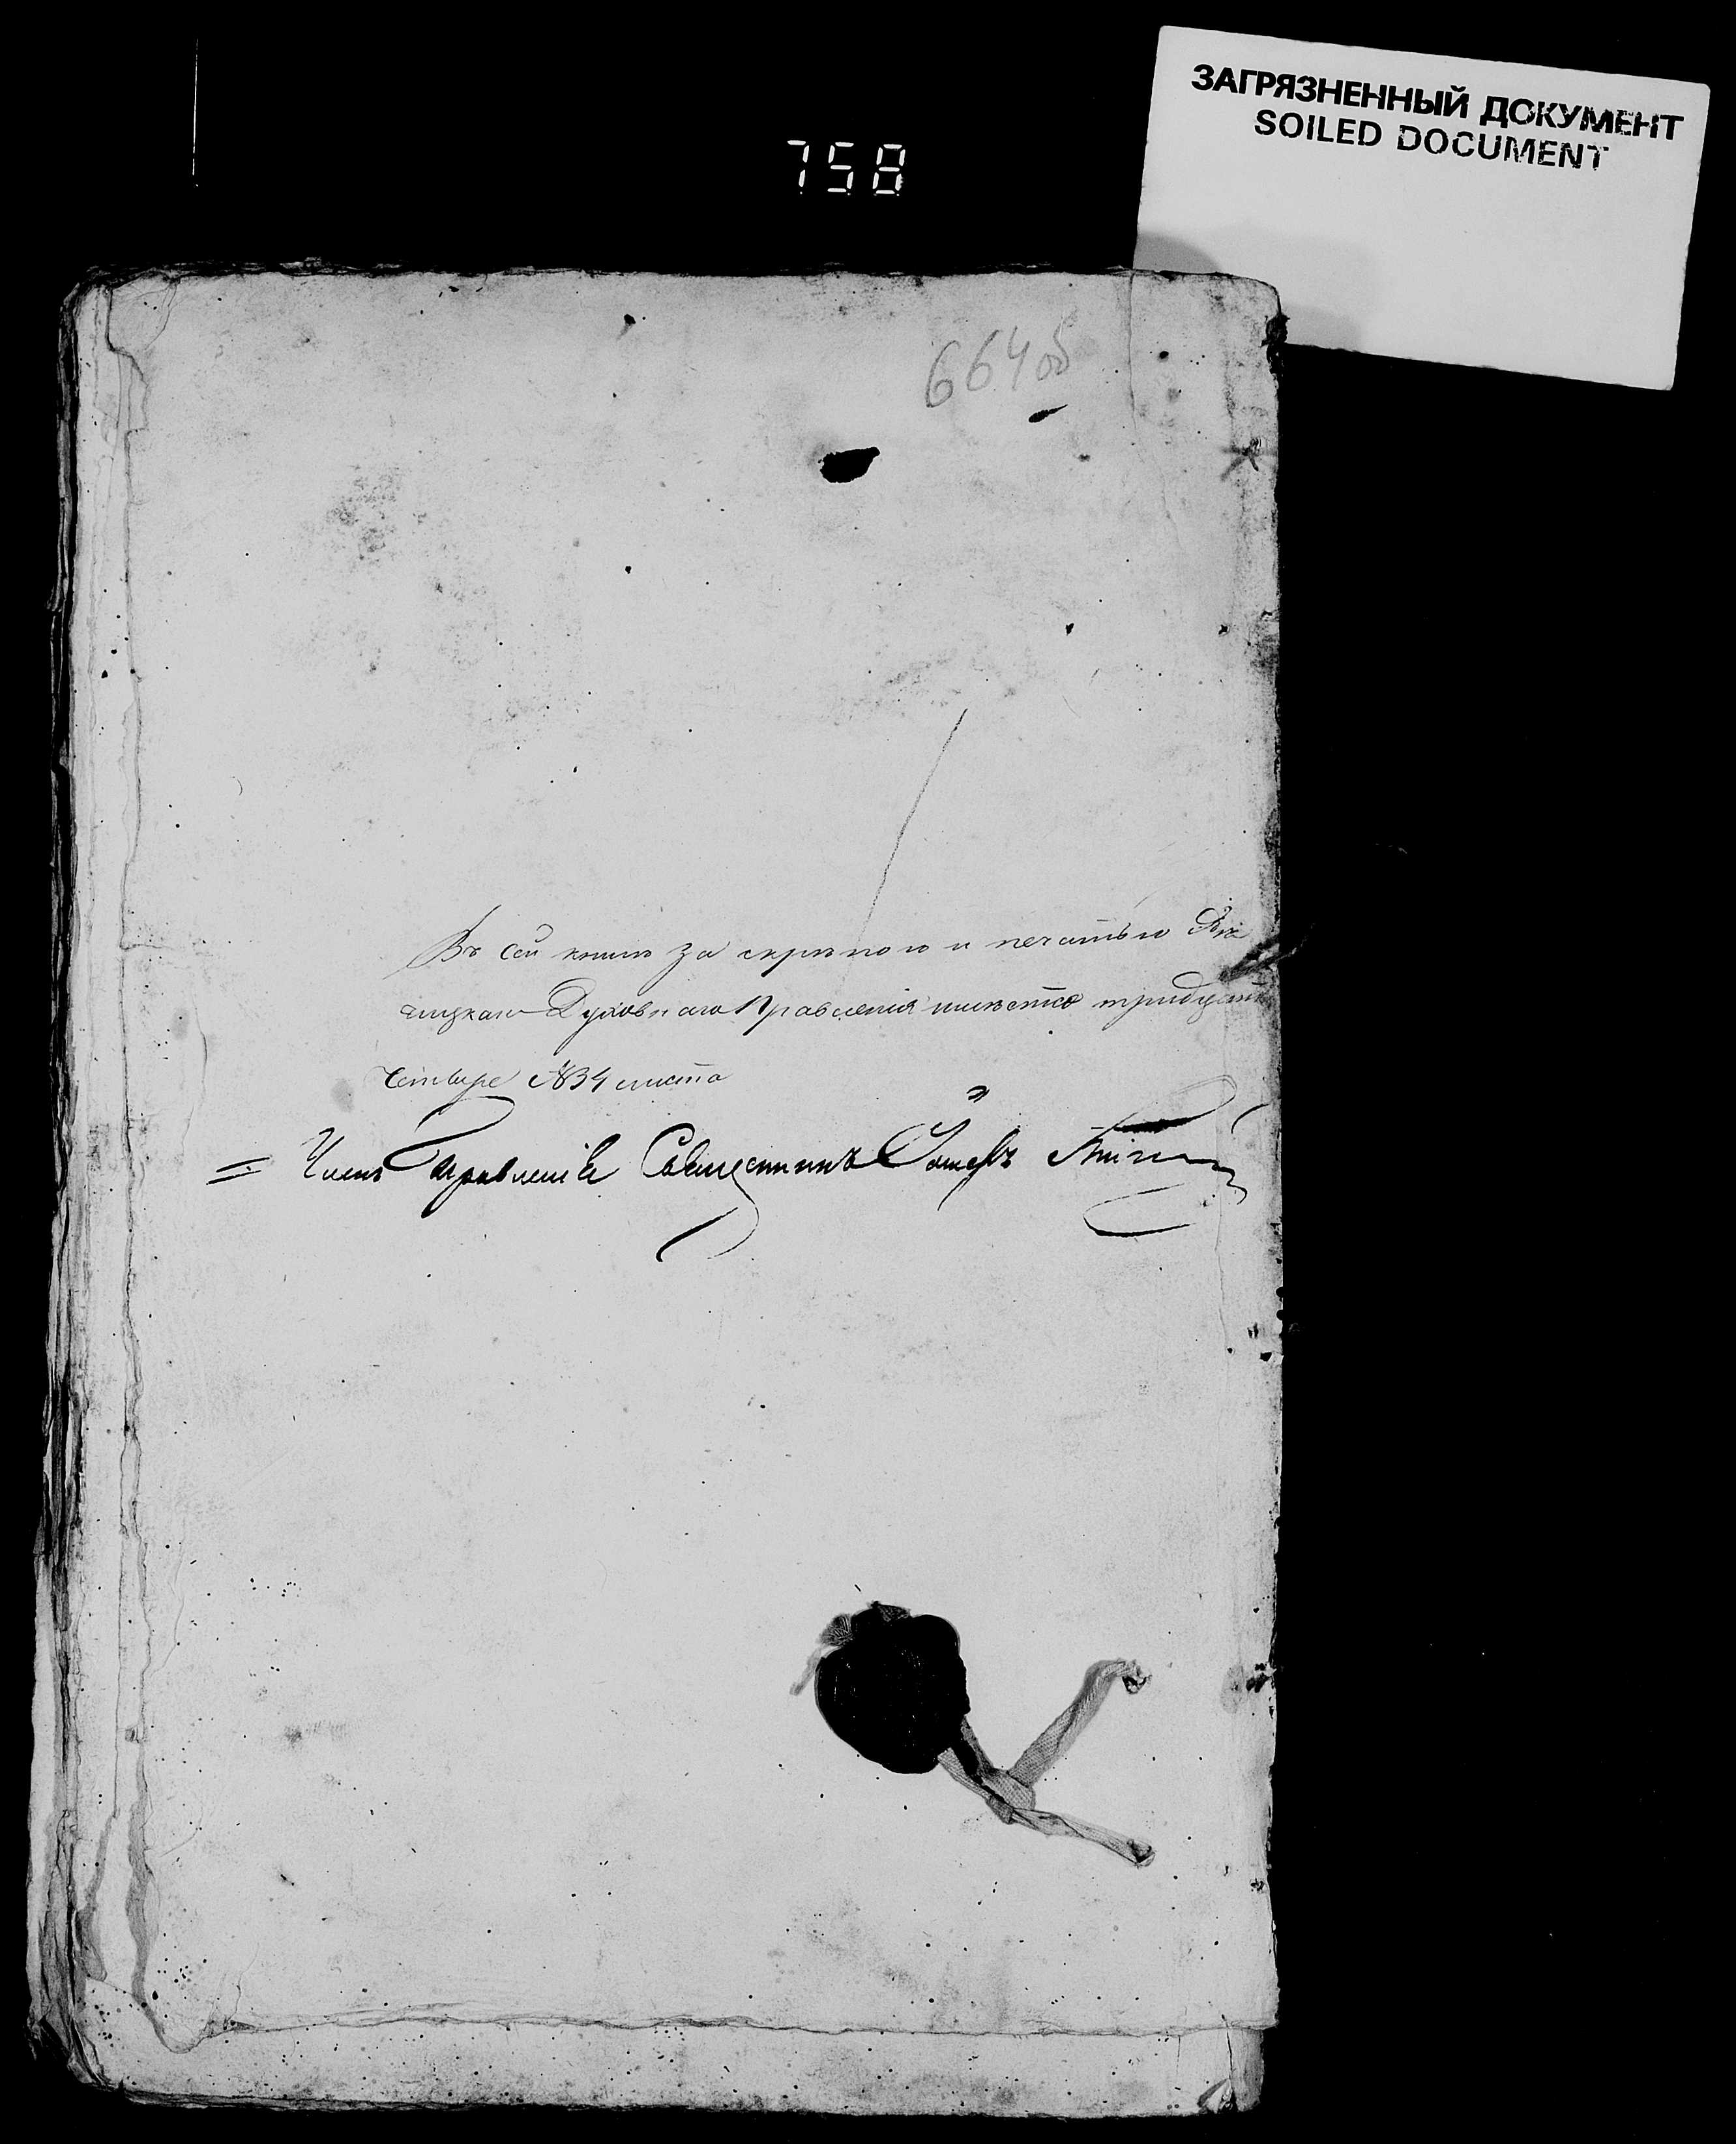 ЗАГРЯЗНЕННЫЙ ДОКУМЕНТ
SOILED DOCUMENT
758
664об
Въ сей книгѣ за скрѣпою и печатью
Духовнаго Правленія имѣется тридцать
четыре №34 листа
Членъ Правленія Священникъ